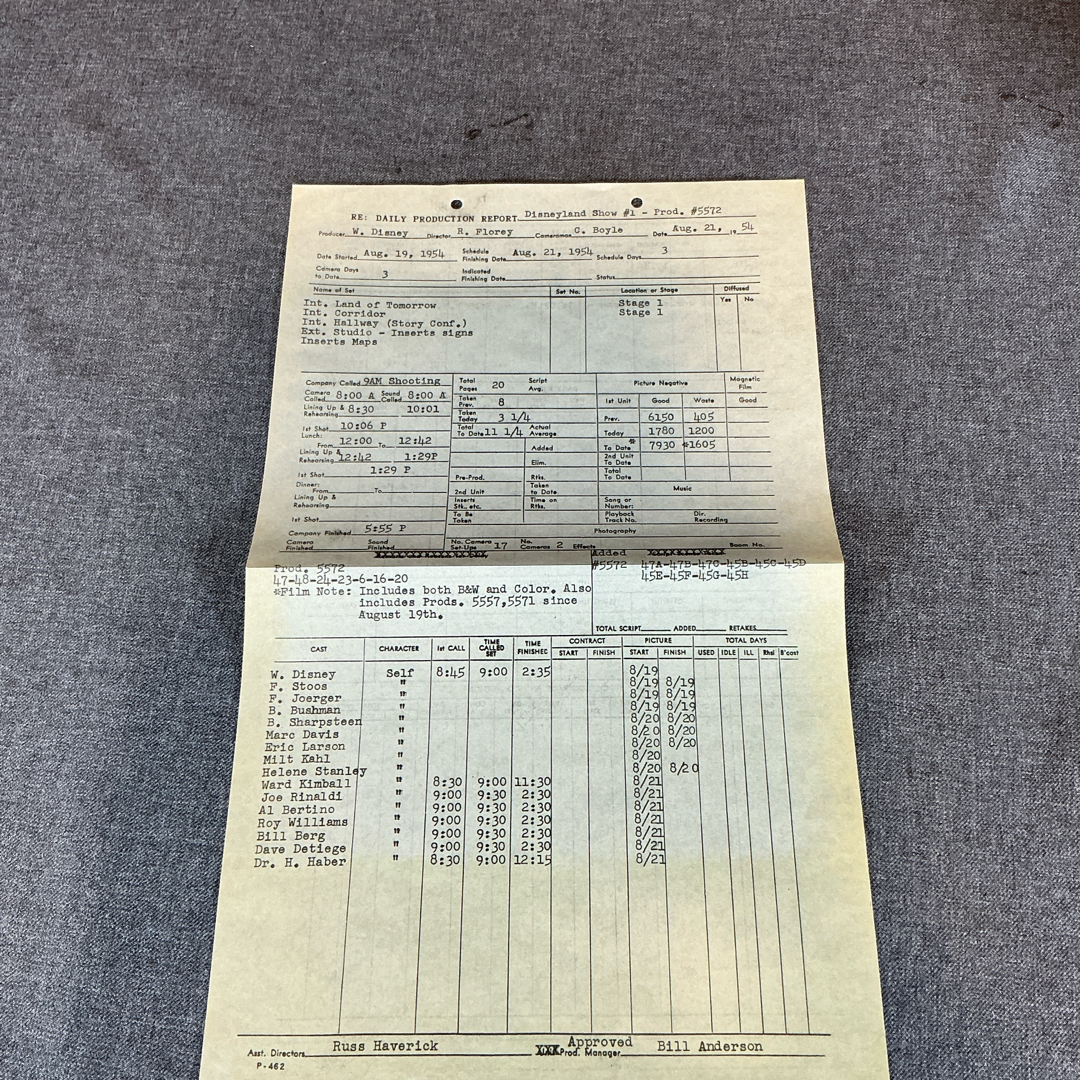 RE: DAILY PRODUCTION REPORT Disneyland Show #1 - Prod. #5572
Producer W. Disney Director R. Florey Cameraman C. Boyle Date Aug. 21, 19 54
Date Started Aug. 19, 1954 Schedule Finishing Date Aug. 21, 1954 Schedule Days 3
Camera Days to Date 3 Indicated Finishing Date Status
Name of Set Set No. Location or Stage Diffused
Yes No
Int. Land of Tomorrow Stage 1
Int. Corridor Stage 1
Int. Hallway (Story Conf.)
Ext. Studio - Inserts signs
Inserts Maps
Company Called 9AM Shooting Total Pages 20 Script Avg. Picture Negative Magnetic Film
Camera Called 8:00 A Sound Called 8:00 A Taken Prev. 8 1st Unit Good Waste Good
Lining Up & Rehearsing 8:30 10:01 Taken Today 3 1/4 Prev. 6150 405
1st Shot 10:06 P Total To Date 11 1/4 Actual Average Today 1780 1200
Lunch: From 12:00 To 12:42 Added To Date * 7930 *1605
Lining Up & Rehearsing 12:42 1:29P Elim. 2nd Unit To Date
1st Shot 1:29 P Pre-Prod. Rtks. Total To Date
Dinner: From To 2nd Unit Taken to Date Music
Lining Up & Rehearsing Inserts Stk., etc. Time on Rtks. Song or Number:
1st Shot To Be Taken Playback Track No. Dir. Recording
Company Finished 5:55 P Photography
Camera Finished Sound Finished No. Camera Set-Ups 17 No. Cameras 2 Effects Boom No.
Added
Prod. 5572 #5572 47A-47B-47C-45B-45C-45D
47-48-24-23-6-16-20 45E-45F-45G-45H
*Film Note: Includes both B&W and Color. Also
includes Prods. 5557,5571 since
August 19th.
TOTAL SCRIPT ADDED RETAKES
CAST CHARACTER 1st CALL TIME CALLED SET TIME FINISHED CONTRACT PICTURE TOTAL DAYS
START FINISH START FINISH USED IDLE ILL Rhsl B'cast
W. Disney Self 8:45 9:00 2:35 8/19
F. Stoos " 8/19 8/19
F. Joerger " 8/19 8/19
B. Bushman " 8/19 8/19
B. Sharpsteen " 8/20 8/20
Marc Davis " 8/20 8/20
Eric Larson " 8/20 8/20
Milt Kahl " 8/20
Helene Stanley " 8/20 8/20
Ward Kimball " 8:30 9:00 11:30 8/21
Joe Rinaldi " 9:00 9:30 2:30 8/21
Al Bertino " 9:00 9:30 2:30 8/21
Roy Williams " 9:00 9:30 2:30 8/21
Bill Berg " 9:00 9:30 2:30 8/21
Dave Detiege " 9:00 9:30 2:30 8/21
Dr. H. Haber " 8:30 9:00 12:15 8/21
Asst. Directors Russ Haverick Approved Prod. Manager Bill Anderson
P-462